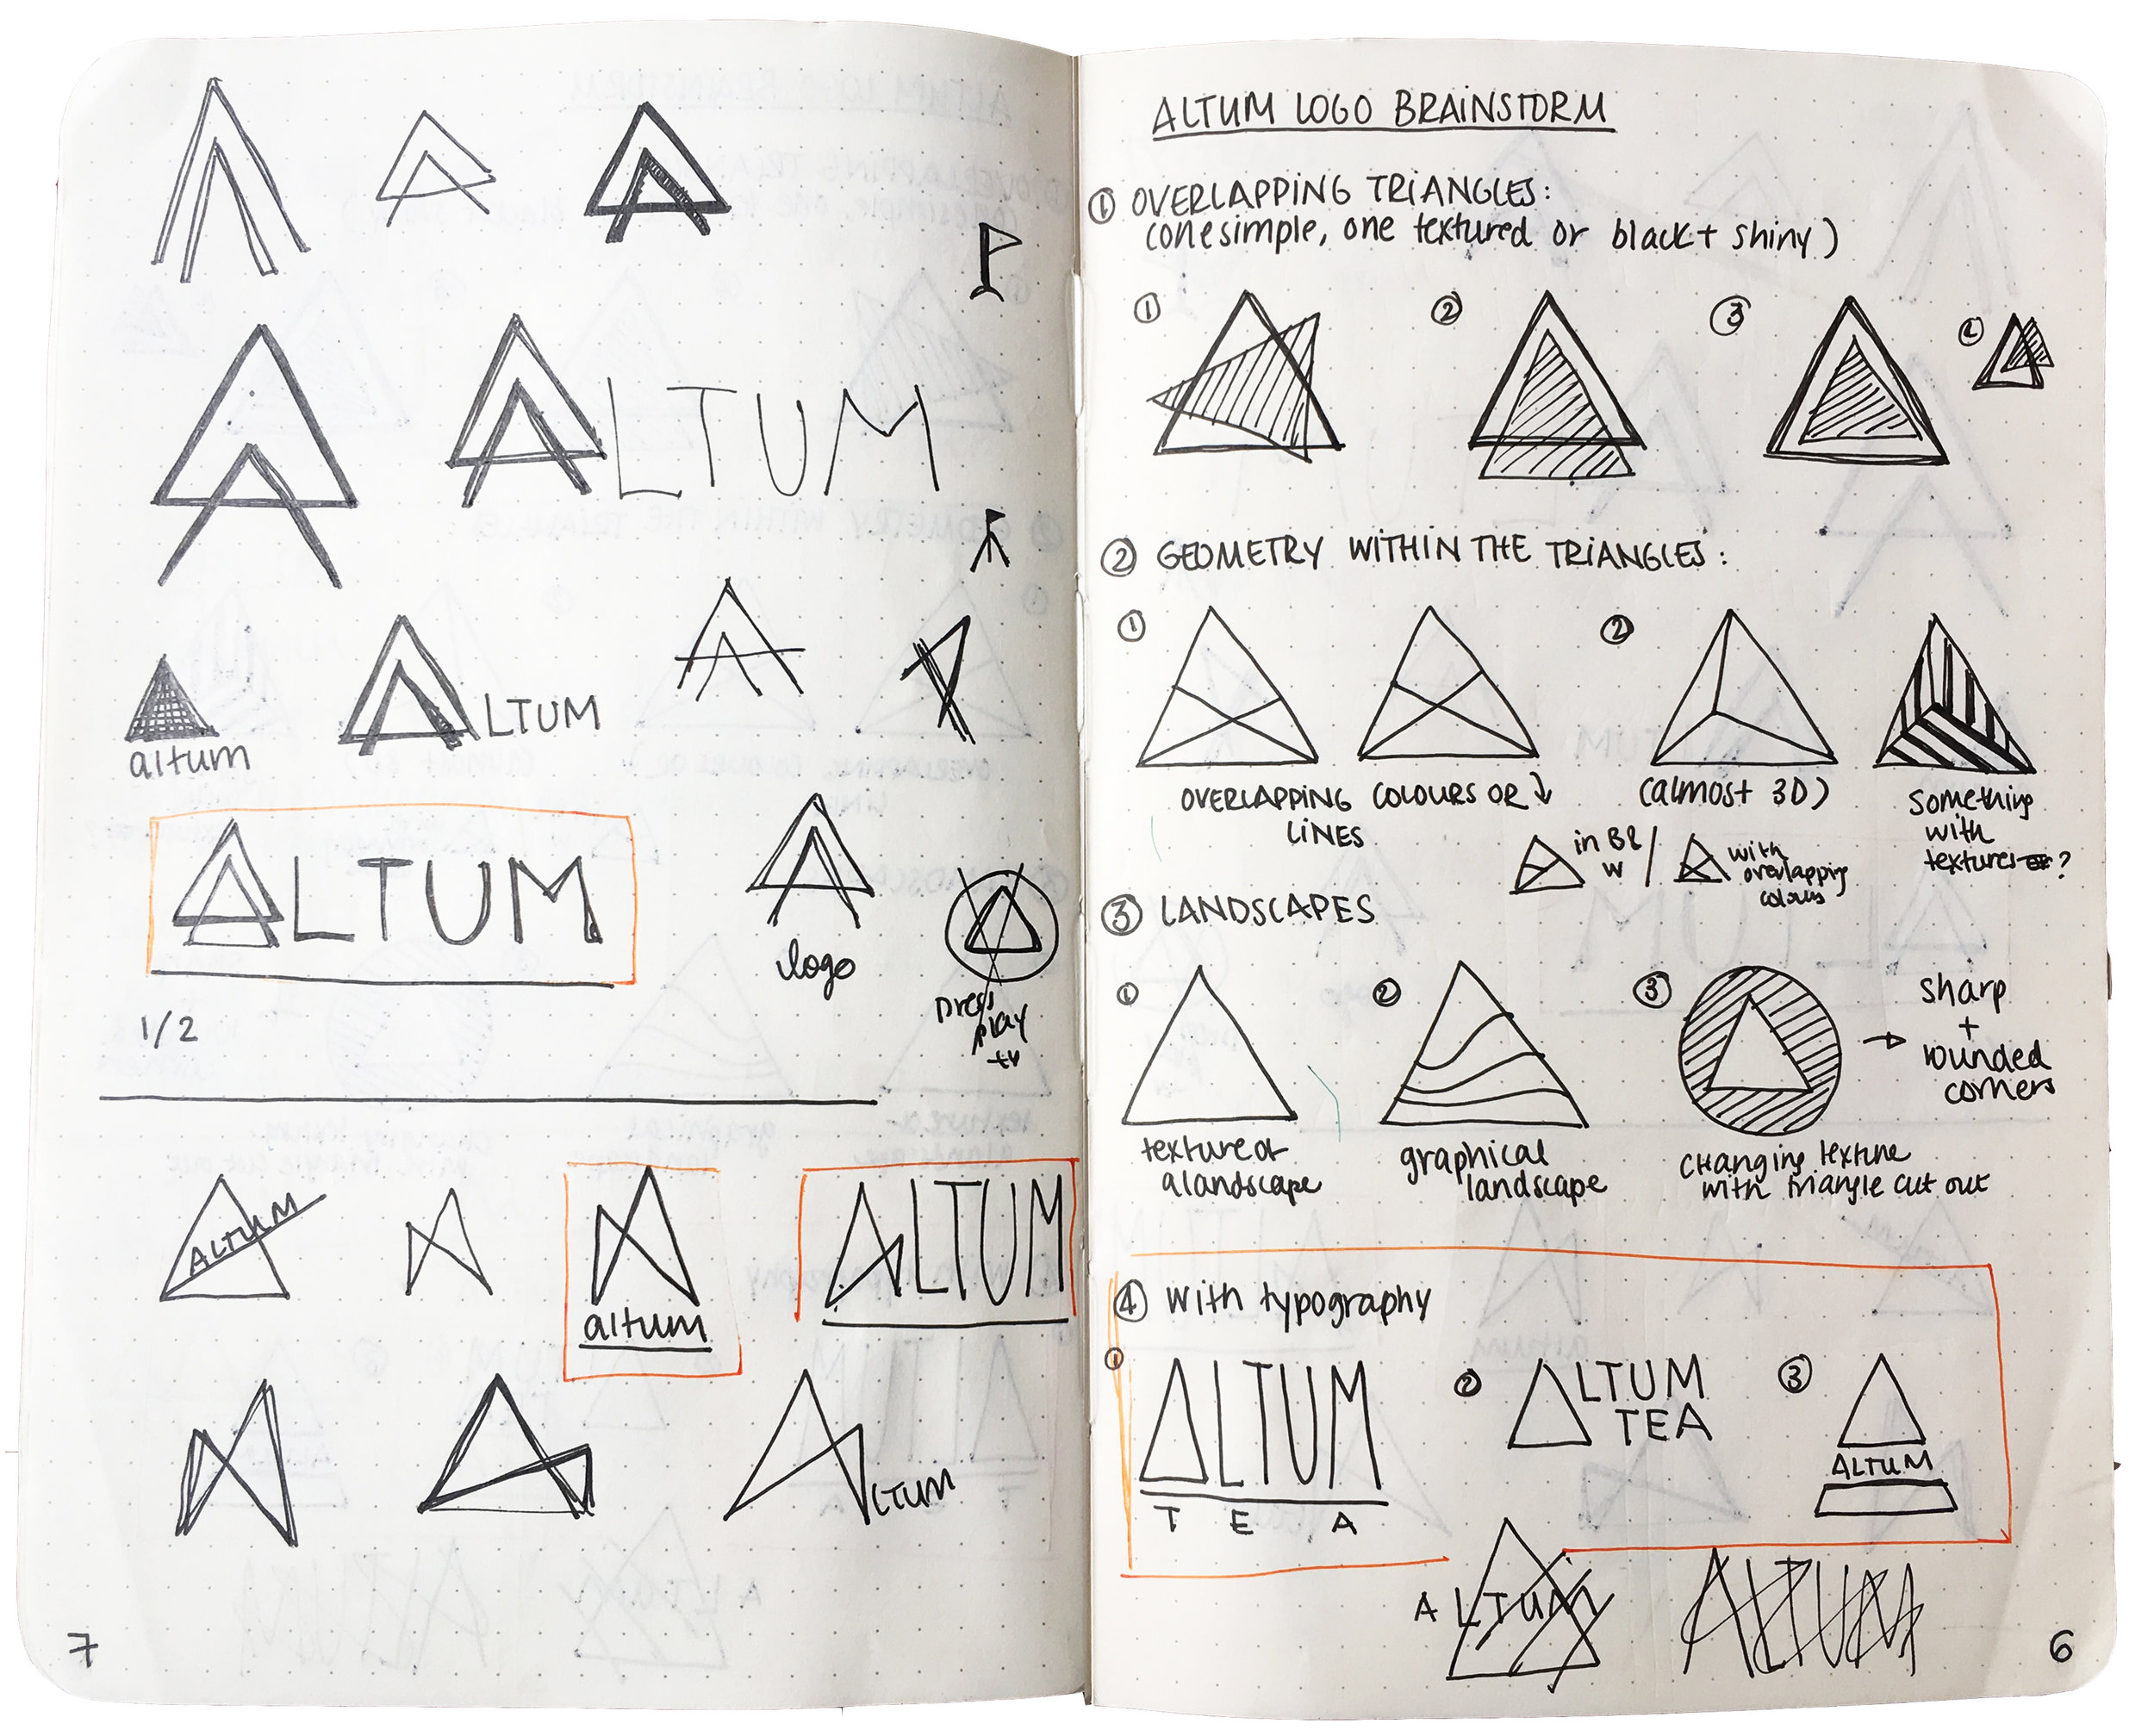 ALTUM
altum
LTUM
ALTUM
logo
press
play
tv
1/2
ALTUM
altum
ALTUM
LTUM
7
ALTUM LOGO BRAINSTORM
① OVERLAPPING TRIANGLES:
(one simple, one textured or black + shiny)
① ② ③
② GEOMETRY WITHIN THE TRIANGLES:
① ②
OVERLAPPING COLOURS OR ↓
LINES
(almost 3D)
something
with
textures ?
in B&
W /
with
overlapping
colours
③ LANDSCAPES
① ② ③
→ sharp
+
rounded
corners
texture of
a landscape
graphical
landscape
changing texture
with triangle cut out
④ with typography
① ALTUM
T E A
② ALTUM
TEA
③ ALTUM
ALTUM
ALTUM
6